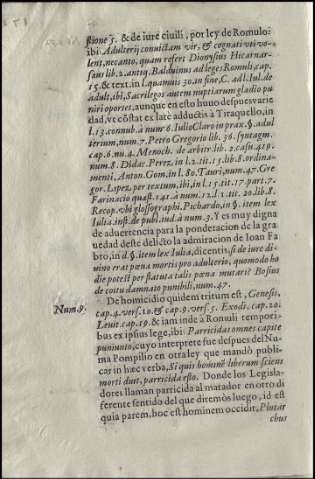 stione 3. & de iure ciuili, por ley de Romulo:
ibi Adulterij conuictam vir, & cognati vti vo-
lent, necanto, quam refert Dionysius Hicarnar-
saus lib. 2. antiq. Balduinus ad leges Romuli, cap.
15. & text. in l. quamuis 30. in fine, C. ad l. Iul. de
adult. ibi, Sacrilegos autem nuptiarum gladio pu
niri oportet, aunque en esto huuo despues varie
dad, vt cõstat ex late adductis à Tiraquello, in
l. 13. connub. à num. 6. Iulio Claro in prax. §. adul
terium, num. 7. Petro Gregorio lib. 36. syntagm.
cap. 6. nu. 4. Menoch. de arbitr. lib. 2. casu 419.
num. 8. Didac. Perez, in l. 2. tit. 15. lib. 8. ordina-
menti, Anton. Gom. in l. 80. Tauri, num. 47. Gre
gor. Lopez, per textum, ibi, in l. 15. tit. 17. part. 7.
Farinacio quæst. 141. à num. 12. l. 1. tit. 20. lib. 8.
Recop. vbi glossographi, Pichardo, in §. item lex
Iulia, inst. de publ. iud. à num. 3. Y es muy digna
de aduertencia para la ponderacion de la gra
uedad deste delicto la admiracion de Ioan Fa
bro, in d. §. item lex Iulia, dicentis, si de iure di-
uino erat pœna mortis pro adulterio, quomodo ho
die potest per statuta talis pœna mutari? Bosius
de coitu damnato punibili, num. 47.
Num. 9. De homicidio quidem tritum est, Genesis,
cap. 4. vers. 10. & cap. 9. vers. 5. Exodi, cap. 20.
Leuit. cap. 19. & iam inde à Romuli tempori-
bus ex ipsius lege, ibi: Parricidas omnes capite
puniunto, cuyo interprete fue despues del Nu-
ma Pompilio en otra ley que mandò publi-
car in hæc verba, Si quis hominẽ liberum sciens
morti duit, parricida esto. Donde los Legisla-
dores llaman parricida al matador en otro di
ferente sentido del que diremos luego, id est
quia parem, hoc est hominem occidit, Plutar
chus